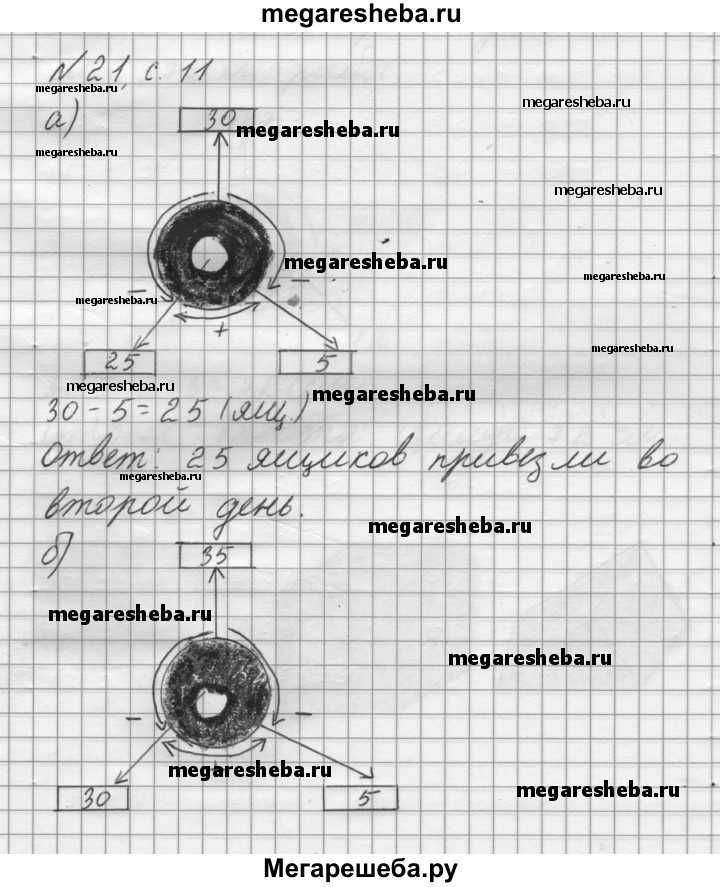 megaresheba.ru
№ 21, с. 11
megaresheba.ru
megaresheba.ru
а)
30
megaresheba.ru
megaresheba.ru
megaresheba.ru
megaresheba.ru
megaresheba.ru
− −
megaresheba.ru
+
megaresheba.ru
25 5
megaresheba.ru
megaresheba.ru
30 - 5 = 25 (ящ.)
Ответ: 25 ящиков привезли во
megaresheba.ru
второй день.
megaresheba.ru
б)
35
megaresheba.ru
megaresheba.ru
− −
+
megaresheba.ru
megaresheba.ru
30 5
Мегарешеба.ру